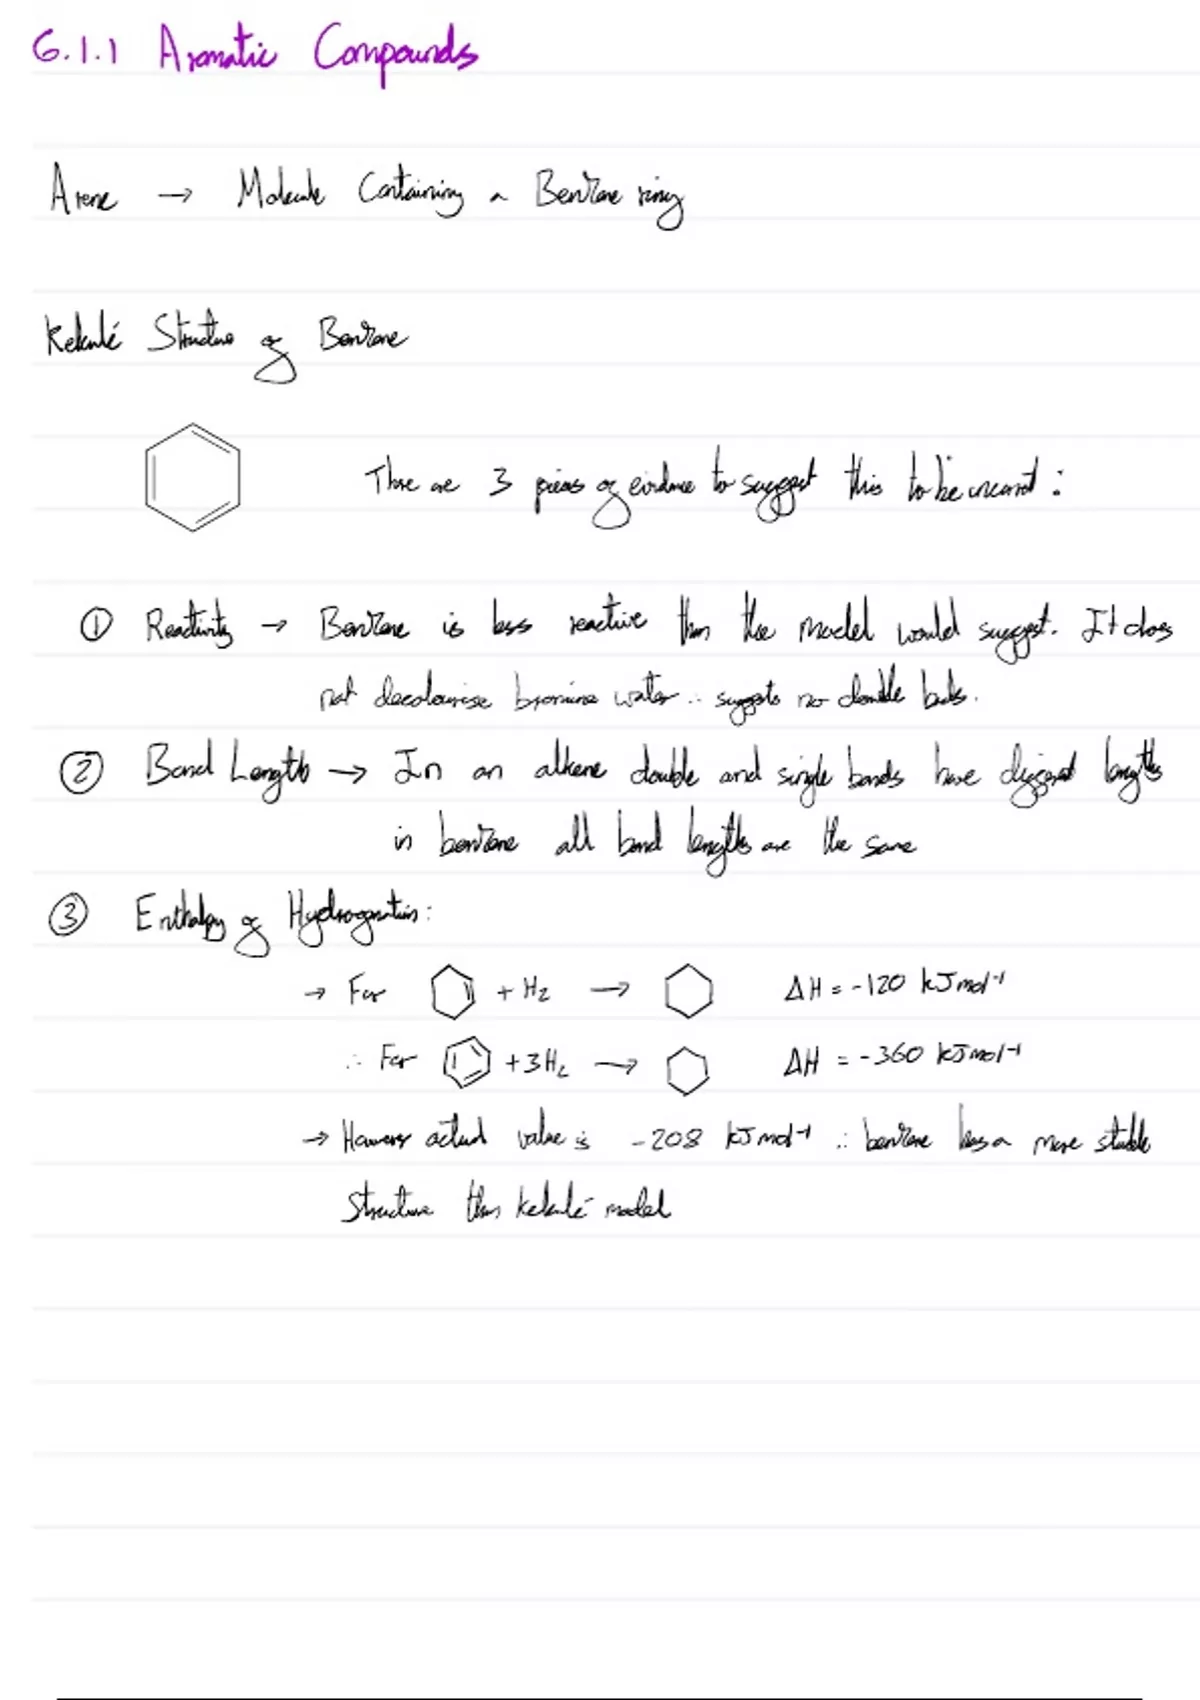 6.1.1 Aromatic Compounds
Arene → Molecule Containing a Benzene ring
Kekulé Structure of Benzene
There are 3 pieces of evidence to suggest this to be incorrect :
① Reactivity → Benzene is less reactive than the model would suggest. It does
not decolourise bromine water ∴ suggests no double bonds.
② Bond Length → In an alkene double and single bonds have different lengths
in benzene all bond lengths are the same
③ Enthalpy of Hydrogenation:
→ For + H₂ → ΔH = -120 kJmol⁻¹
∴ For +3H₂ → ΔH = -360 kJmol⁻¹
→ However actual value is -208 kJmol⁻¹ ∴ benzene has a more stable
Structure than Kekulé model